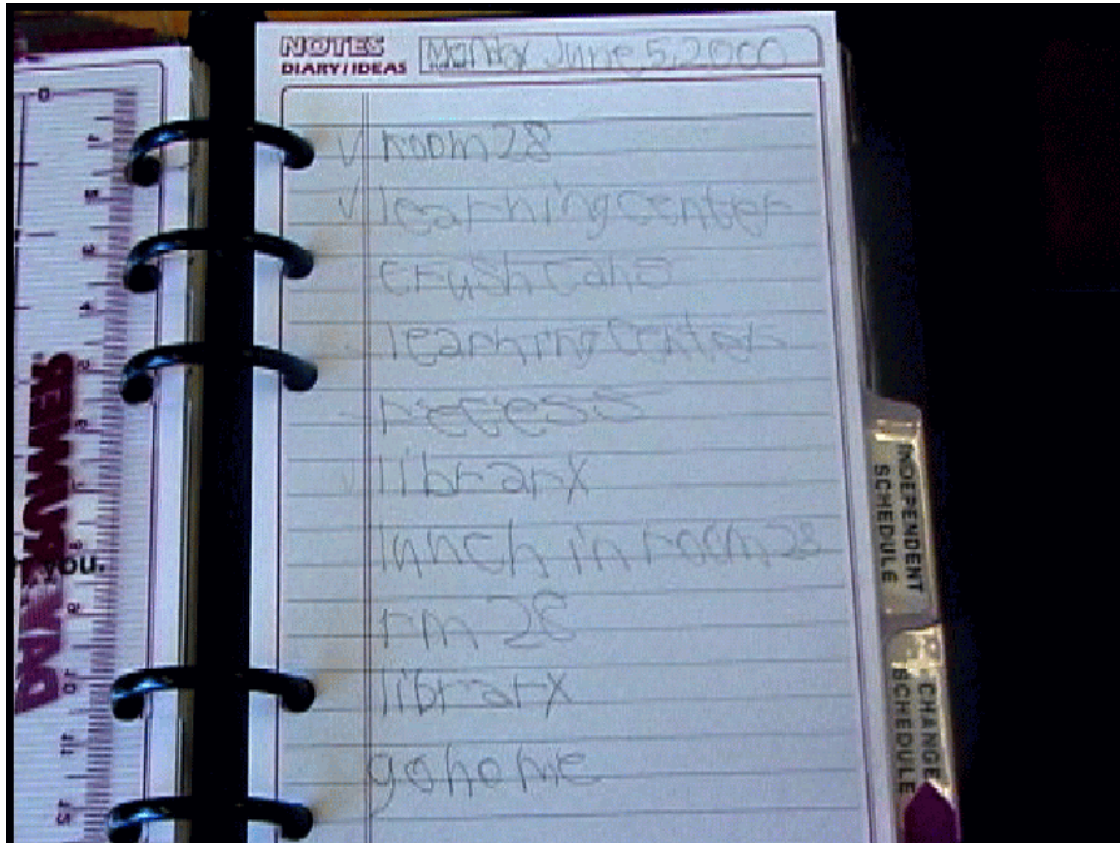 NOTES
DIARY/IDEAS
Monday June 5, 2000
✓ room 28
✓ learning center
crush cans
learning center
recess
library
lunch in room 28
rm 28
library
go home
INDEPENDENT
SCHEDULE
CHANGE
SCHEDULE
you.
DAY RUNNER